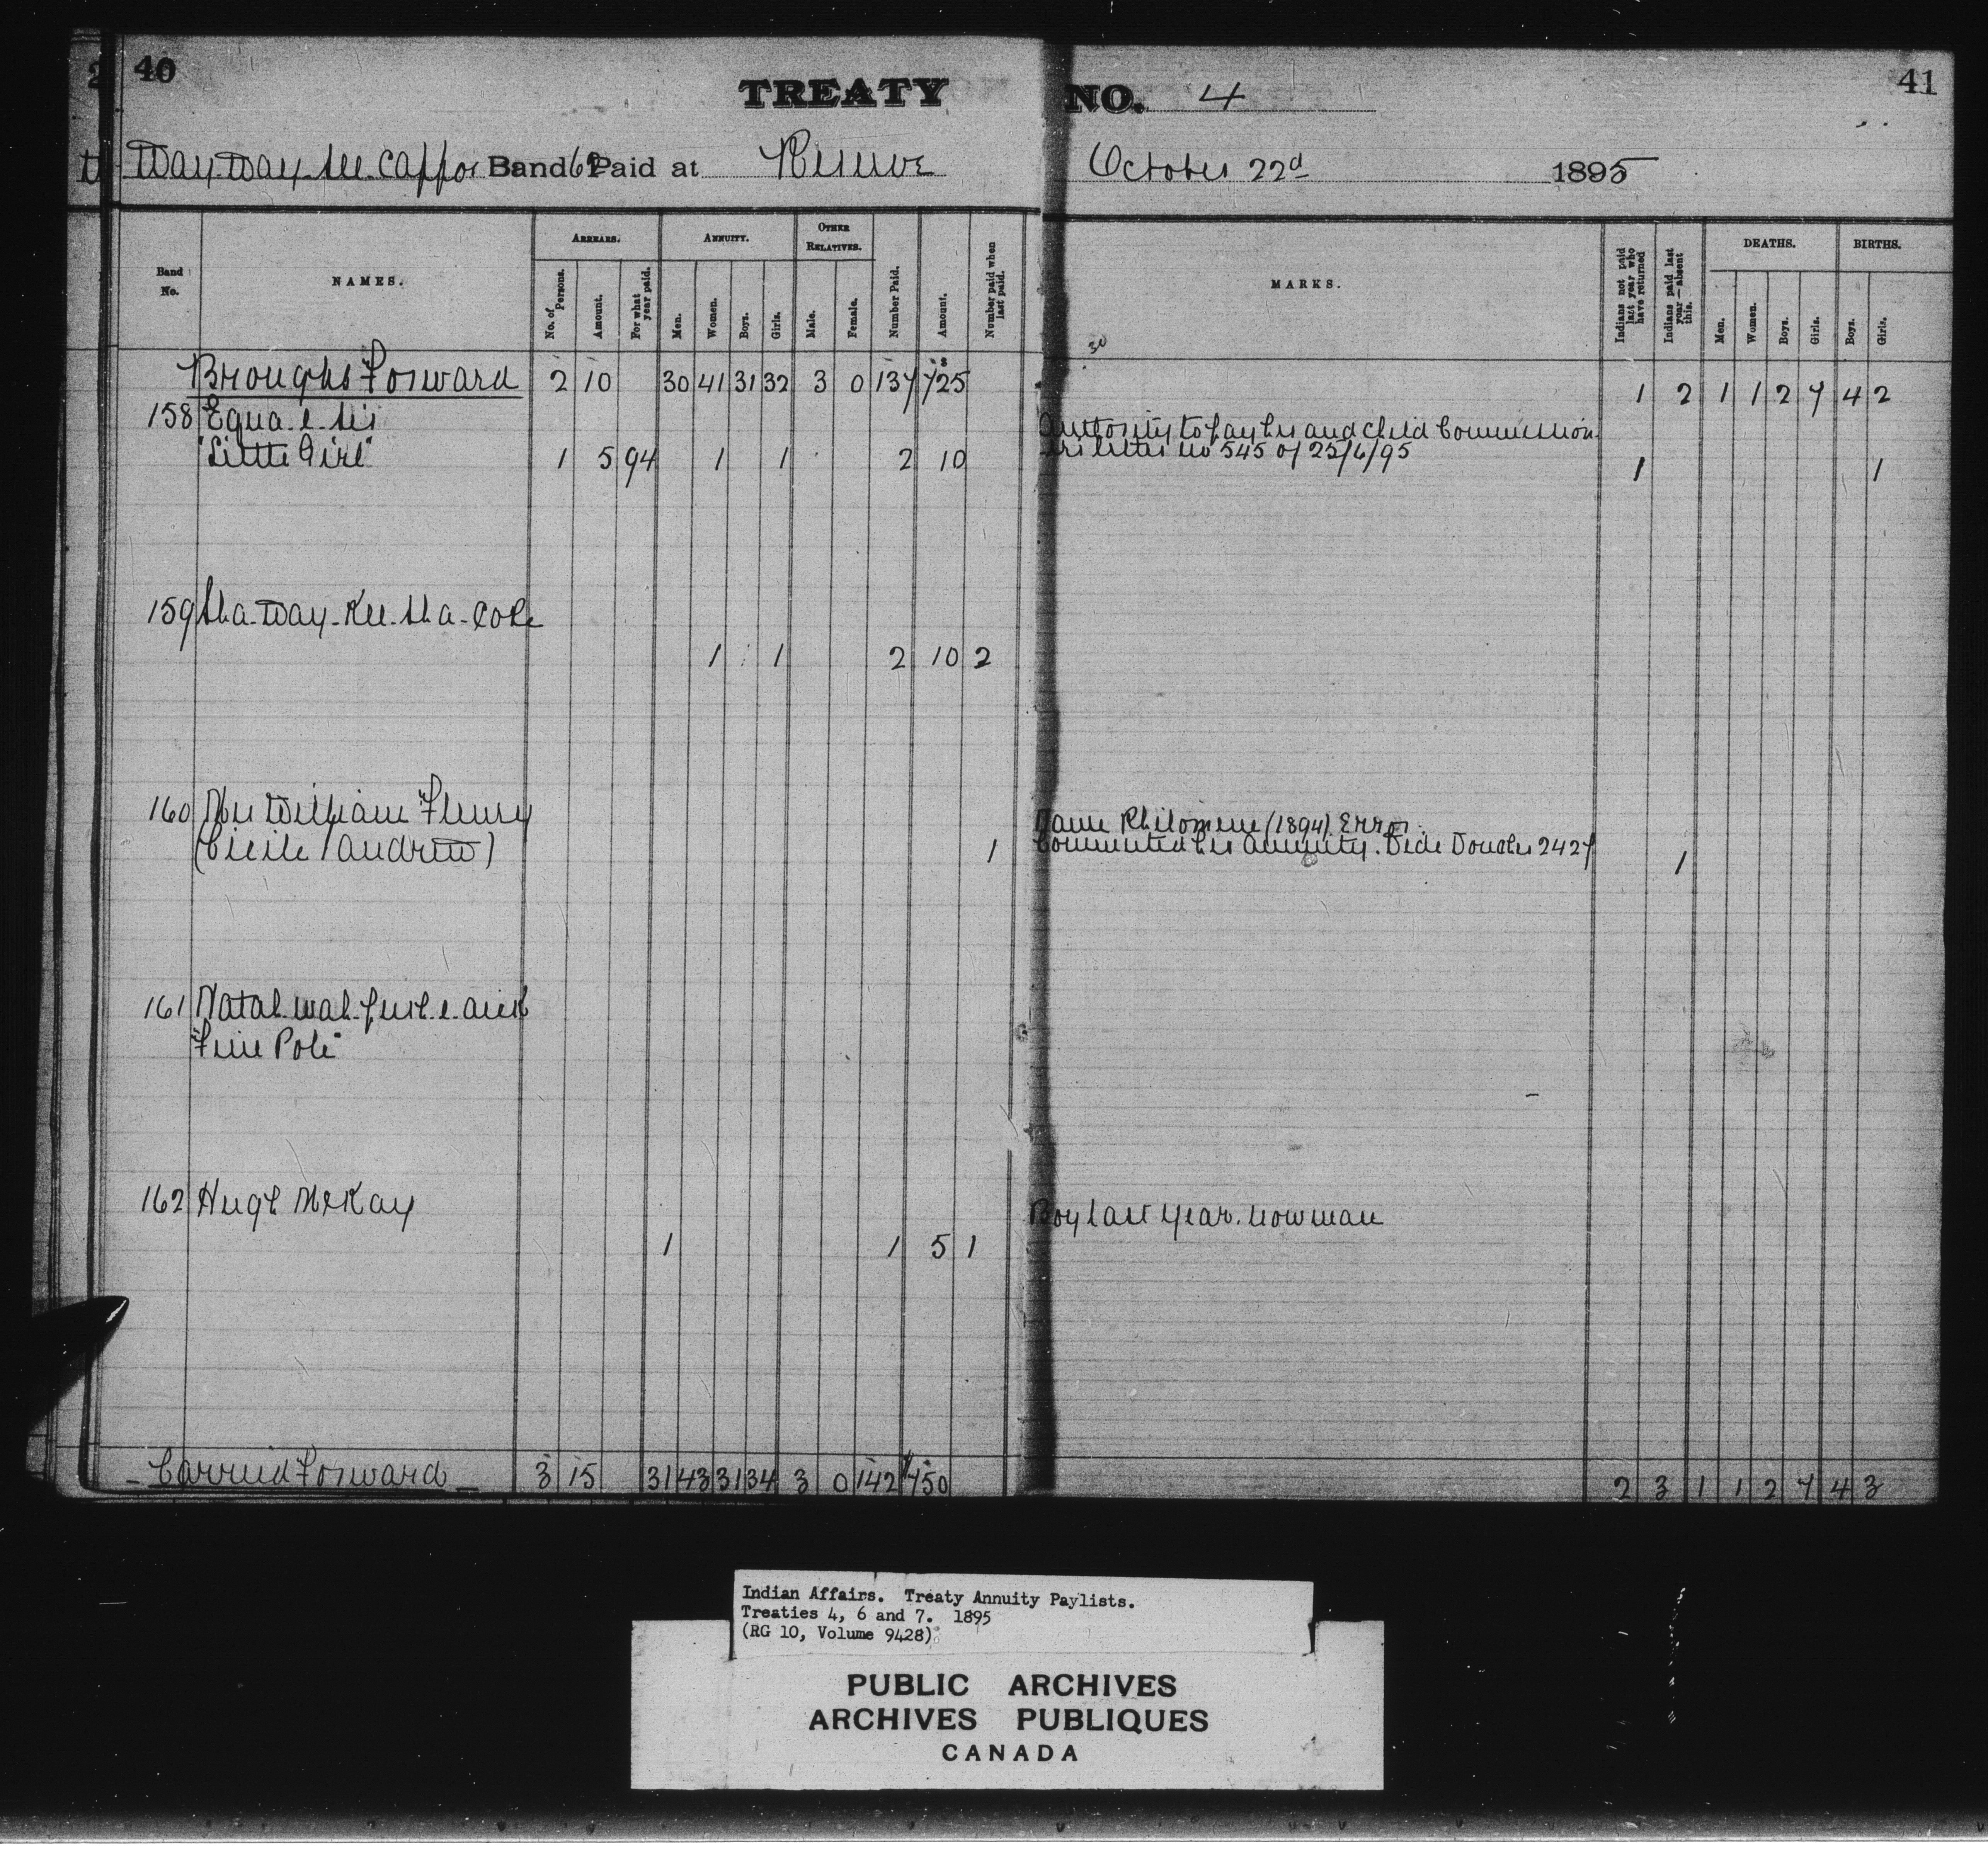 40
TREATY NO. 4
41
Way-Way-see-cappo Band 62 Paid at Reserve October 22d 1895
Band No. NAMES. ARREARS. ANNUITY. OTHER RELATIVES. Number Paid. Amount. Number paid when last paid. MARKS. Indians not paid last year who have returned Indians paid last year—absent this. DEATHS. BIRTHS.
No. of Persons. Amount. For what year paid. Men. Women. Boys. Girls. Male. Female. Men. Women. Boys. Girls. Boys. Girls.
30
Broughs Forward 2 10 30 41 31 32 3 0 137 725 1 2 1 1 2 7 4 2
158 Equa-e-sis Authority to pay her and child Commission
"Little Girl" 1 5 94 1 1 2 10 letter no 545 of 25/6/95 1 1
159 Sha-Way-Kee-sha-cose
1 1 2 10 2
160 Mrs William Fleury Name Philomene (1894) Error.
(Cicile / Andrew) 1 Commuted her annuity. Vide Voucher 2427 1
161 Natah-wah-push-e-
"Fine Pole"
162 Hugh McKay Boy last year. now man
1 1 5 1
Carried Forward 3 15 31 43 31 34 3 0 142 750 2 3 1 1 2 7 4 3
Indian Affairs. Treaty Annuity Paylists.
Treaties 4, 6 and 7. 1895
(RG 10, Volume 9428)
PUBLIC ARCHIVES
ARCHIVES PUBLIQUES
CANADA